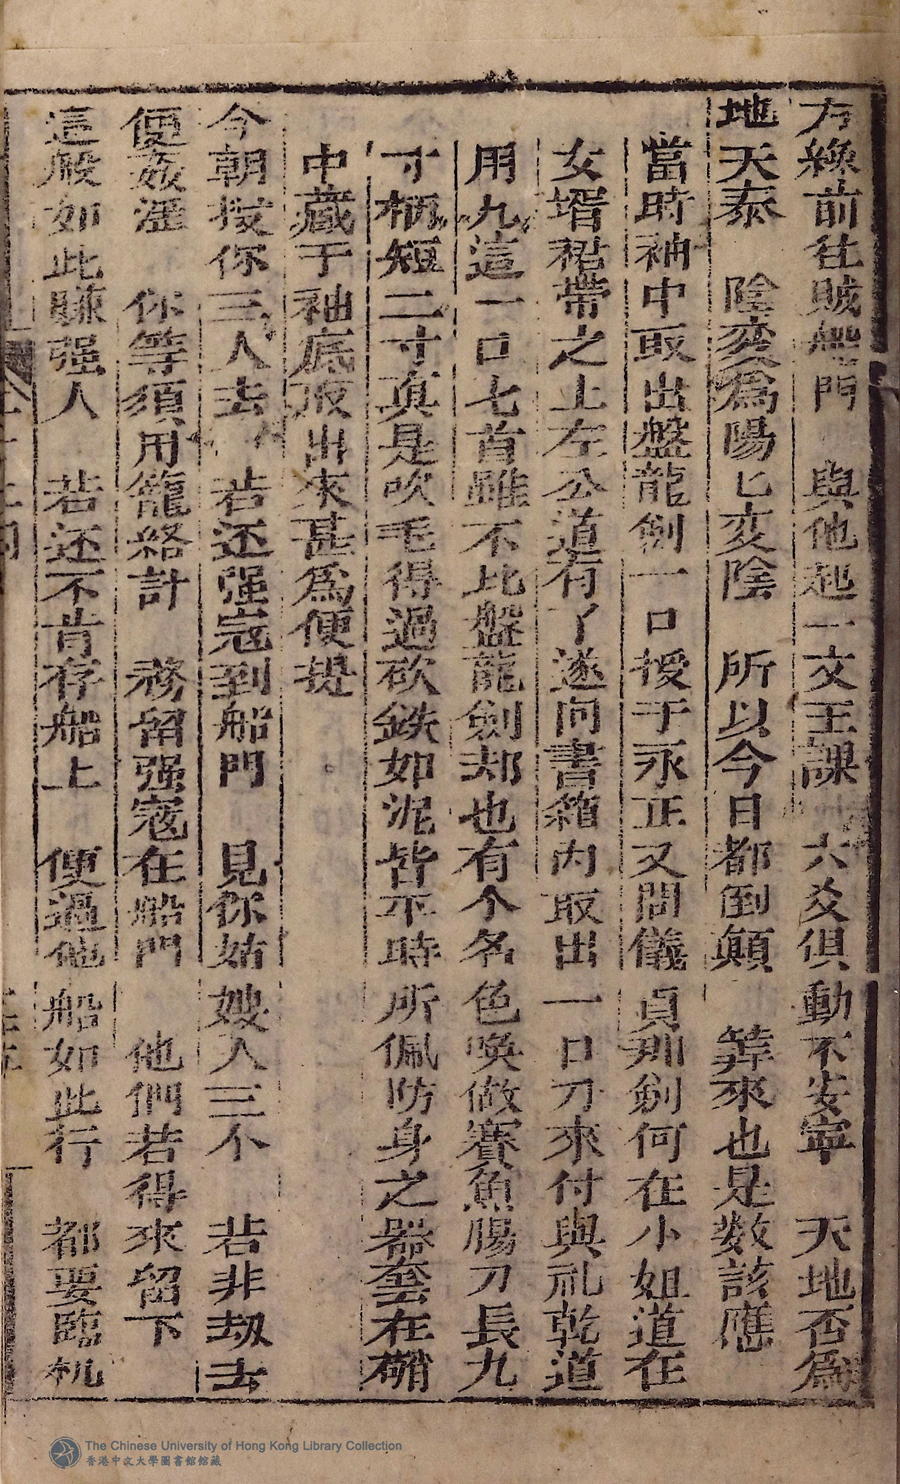 方纔前往賊船門　與他起一文王課　六爻俱動不安寧　天地否為
地天泰　陰変為陽匕変陰　所以今日都倒顛　筭來也是数該應
當時袖中取出盤龍劍一口授于永正又問儀貞那劍何在小姐道在
女壻裙帶之上左公道有了遂向書箱内取出一口刀來付與礼乾道
用九這一口七首雖不比盤龍劍却也有个名色喚做賽魚腸刀長九
寸柄短二寸真是吹毛得過砍鉄如泥皆平時所佩防身之器套在鞘
中藏于袖底取出來甚為便提
今朝披你三人去　若还强寇到船門　見你姑嫂人三个　若非刼去
便姦淫　你等須用籠絡計　務留强寇在船門　他們若得來留下
這般如此賺强人　若还不肯存船上　便過他船如此行　都要臨机
The Chinese University of Hong Kong Library Collection
香港中文大學圖書館館藏